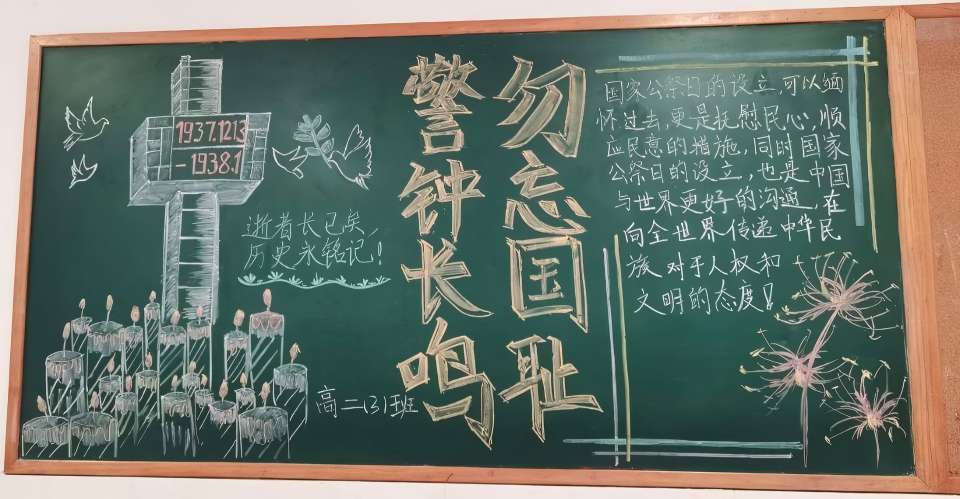 1937.1213
-1938.1
逝者长已矣,
历史永铭记!
勿忘国耻
警钟长鸣
高二(3)班
国家公祭日的设立,可以缅
怀过去,更是抚慰民心,顺
应民意的措施,同时国家
公祭日的设立,也是中国
与世界更好的沟通,在
向全世界传递中华民
族对于人权和
文明的态度!